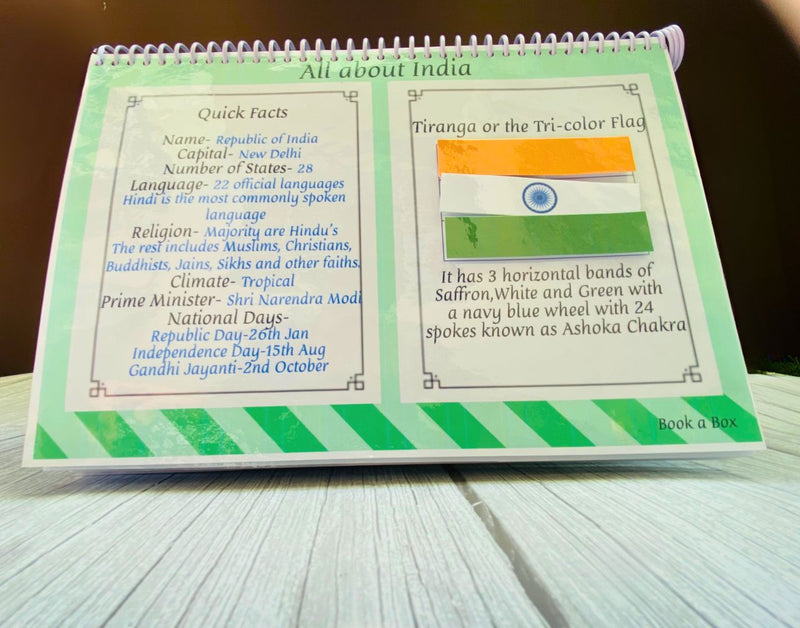 All about India
Quick Facts
Name- Republic of India
Capital- New Delhi
Number of States- 28
Language- 22 official languages
Hindi is the most commonly spoken
language
Religion- Majority are Hindu's
The rest includes Muslims, Christians,
Buddhists, Jains, Sikhs and other faiths.
Climate- Tropical
Prime Minister- Shri Narendra Modi
National Days-
Republic Day-26th Jan
Independence Day-15th Aug
Gandhi Jayanti-2nd October
Tiranga or the Tri-color Flag
It has 3 horizontal bands of
Saffron,White and Green with
a navy blue wheel with 24
spokes known as Ashoka Chakra
Book a Box